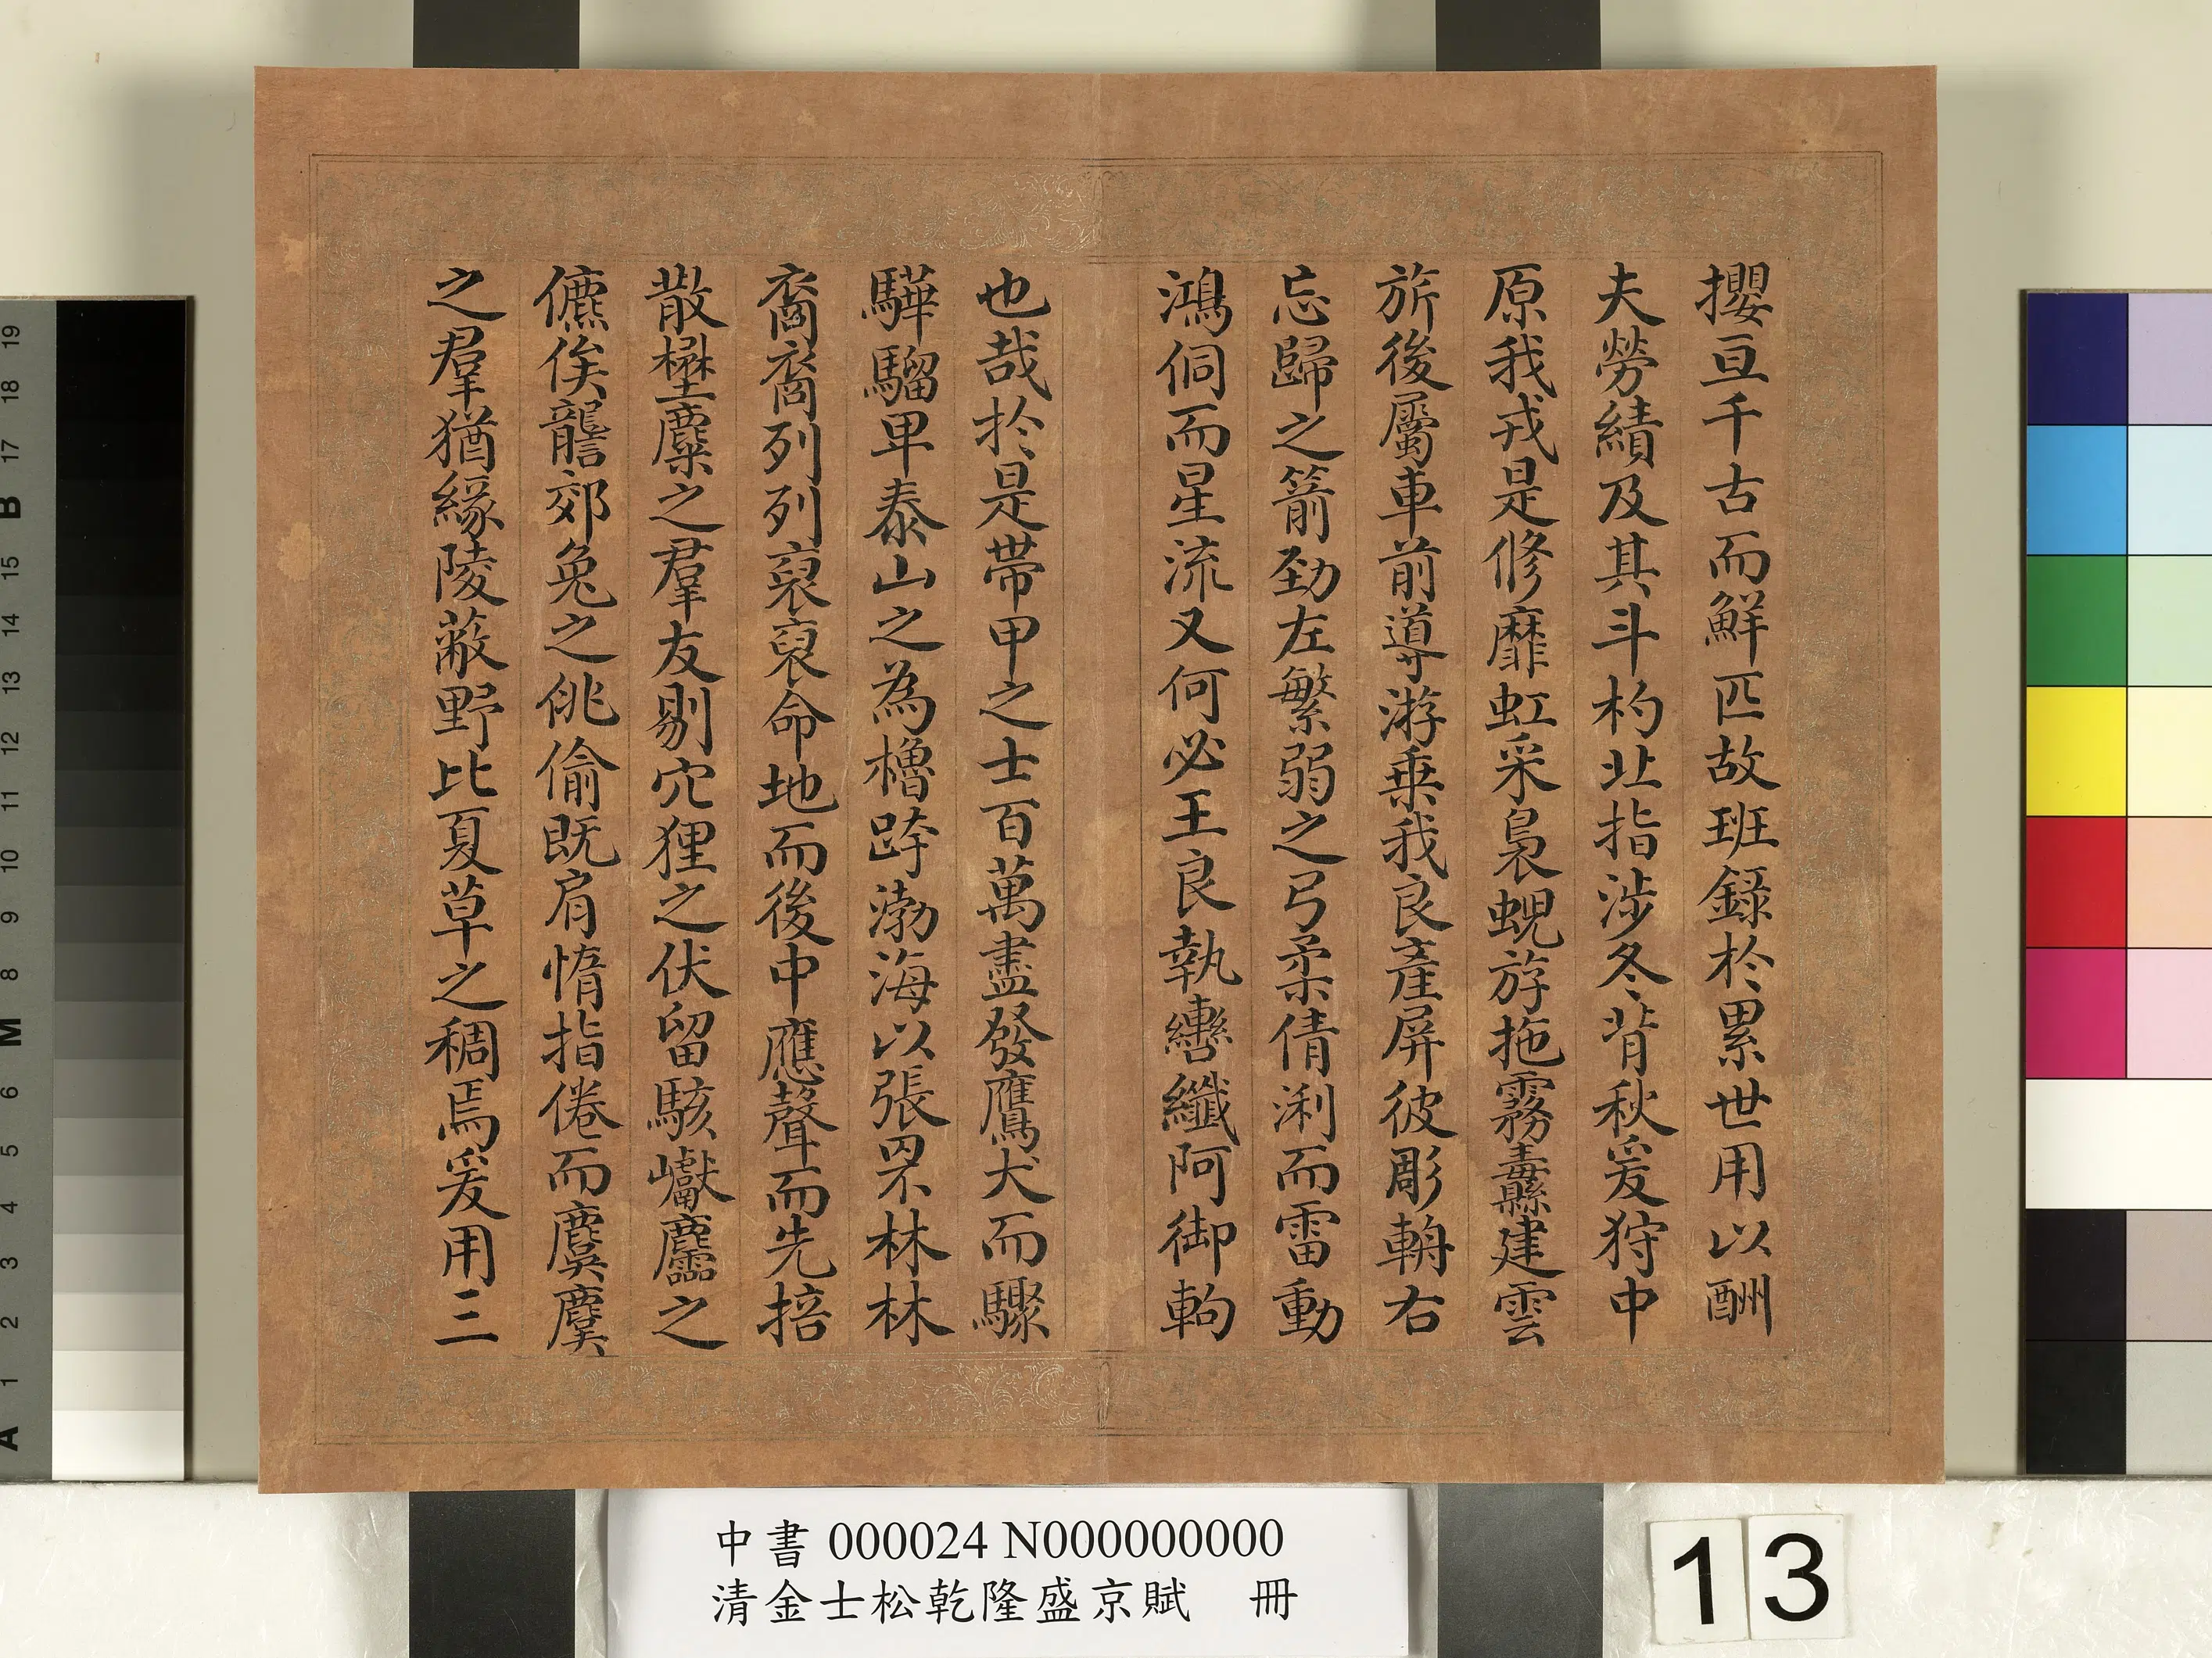 攖亘千古而鮮匹故班錄於累世用以酬
夫勞績及其斗杓北指涉冬背秋爰狩中
原我戎是修靡虹采裊蜺斿拖霧纛建雲
旂後屬車前導游乗我良產屏彼彫輈右
忘歸之箭勁左繁弱之弓柔倩浰而雷動
鴻侗而星流又何必王良執轡纖阿御軥
也哉於是帶甲之士百萬盡發鷹犬而驟
驊騮卑泰山之為櫓跨渤海以張罘林林
裔裔列列裒裒命地而後中應聲而先掊
散壄麇之羣友剔穴狸之伏留駭巘麢之
儦俟讋郊兔之佻偷既肩惰指倦而麌麌
之羣猶緣陵蔽野比夏草之稠焉爰用三
中書 000024 N000000000
清金士松乾隆盛京賦 冊
13
19
18
17
B
16
15
14
13
12
11
10
9
8
M
6
5
4
3
2
1
A